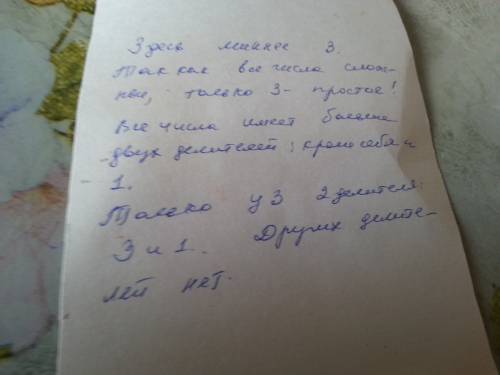 Здесь лишнее 3.
Так как все числа слож-
ные, только 3- простое!
Все числа имеет более
двух делителей: кроме себя и
1.
Только у 3 2 делителя:
3 и 1. Других делите-
лей нет.